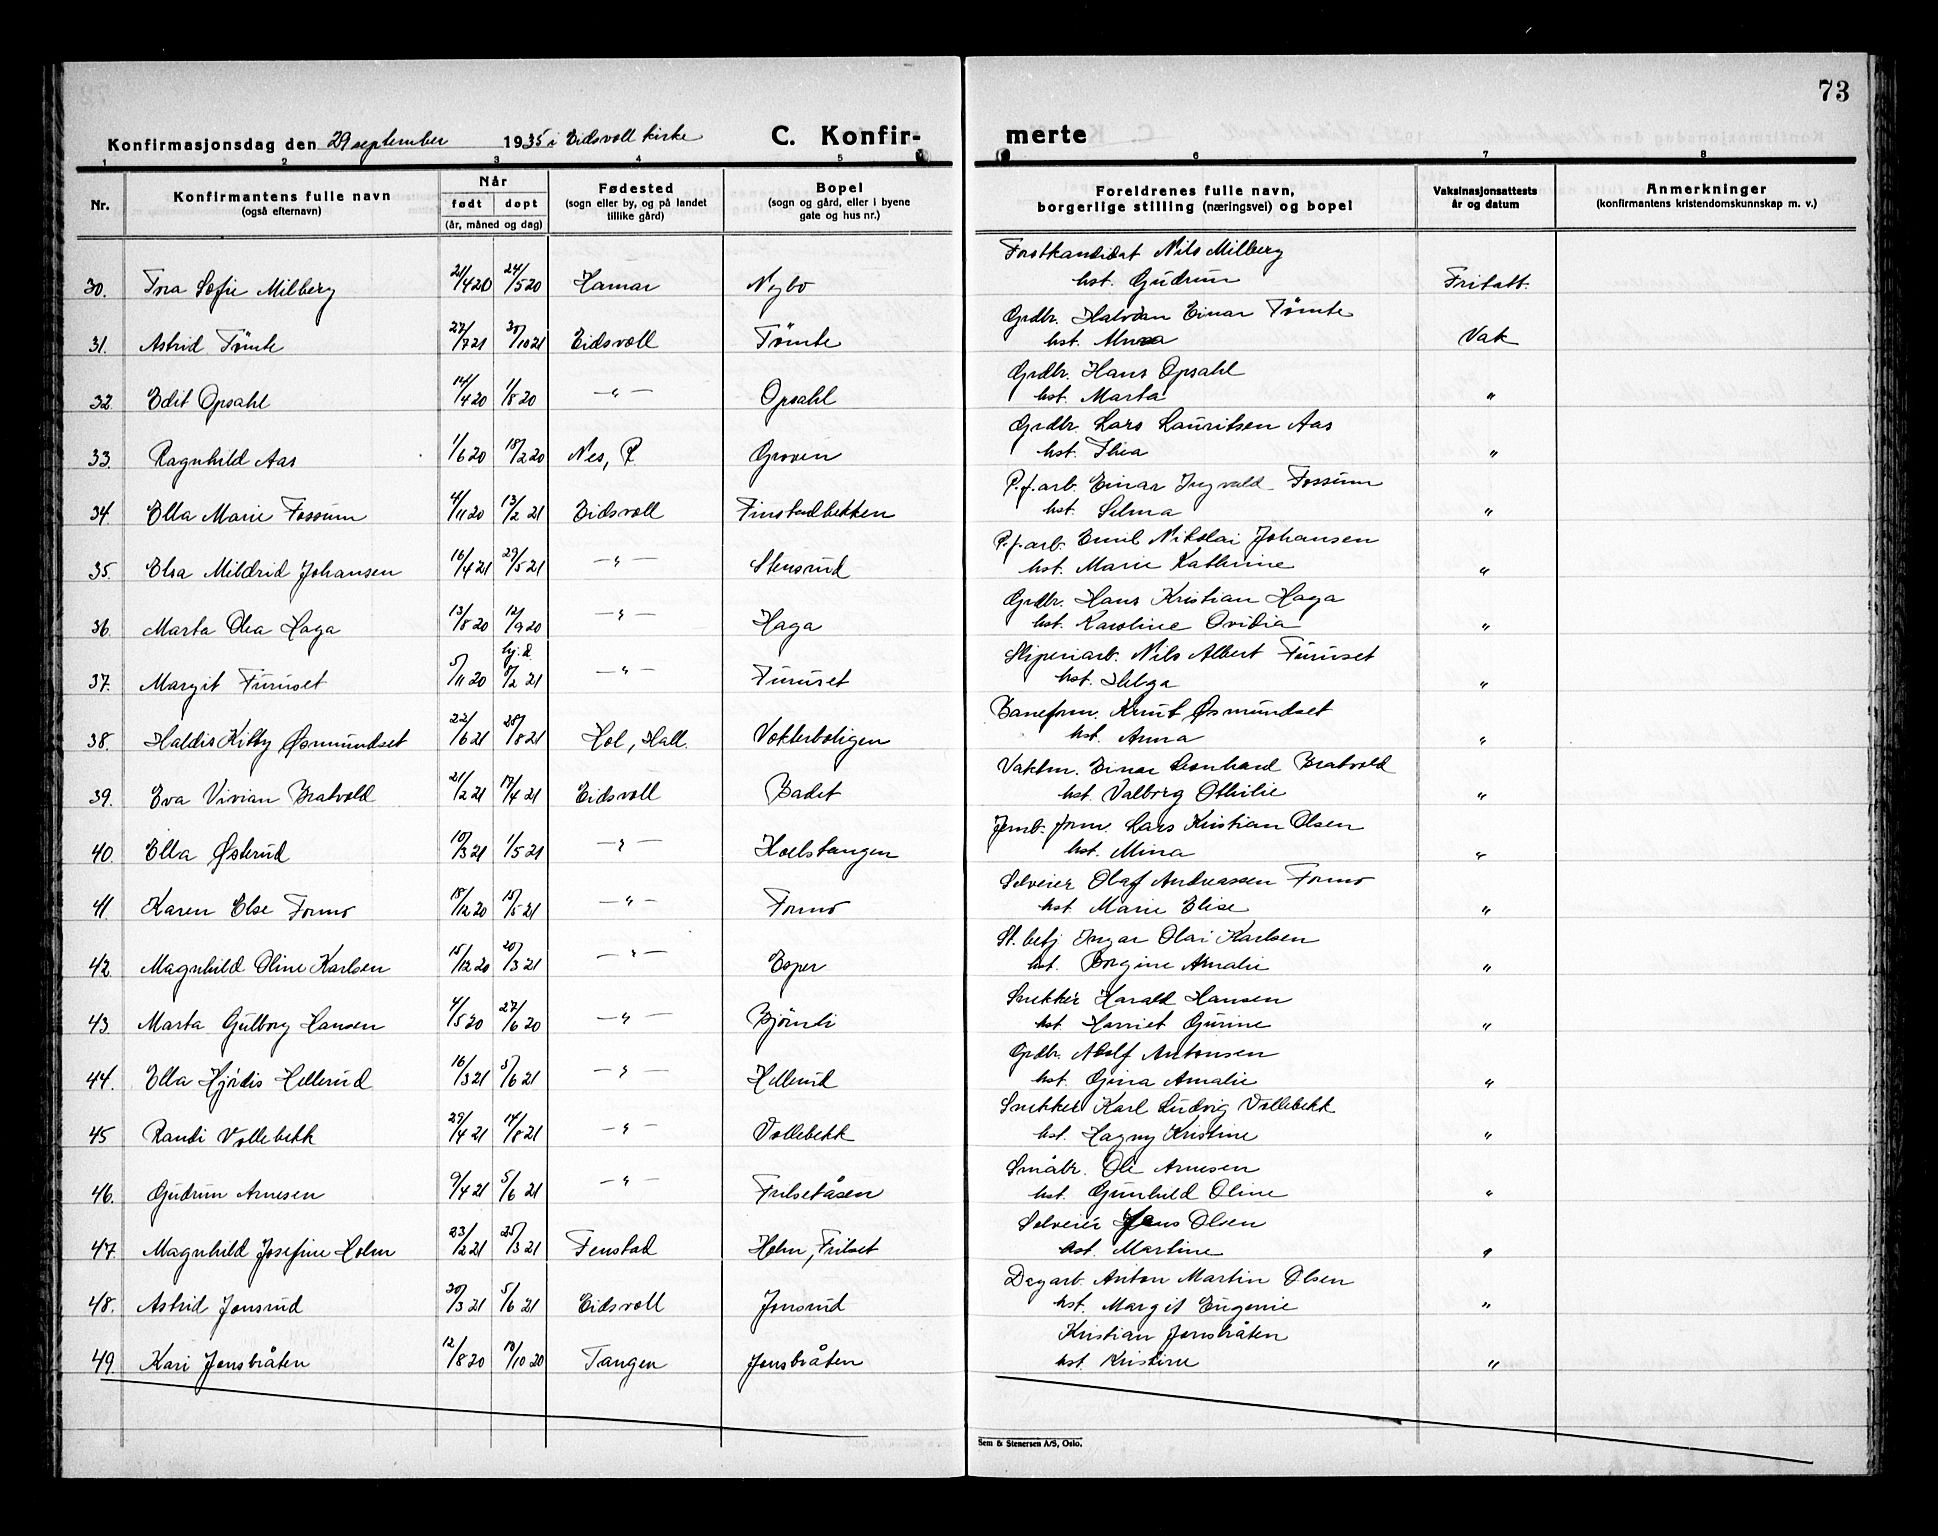 73
Konfirmasjonsdag den 29 september 1935 i Eidsvoll kirke C. Konfir- merte
1 2 3 4 5 6 7 8
Nr. Konfirmantens fulle navn (også efternavn) Når født døpt (år, måned og dag) Fødested (sogn eller by, og på landet tillike gård) Bopel (sogn og gård, eller i byene gate og hus nr.) Foreldrenes fulle navn, borgerlige stilling (næringsvei) og bopel Vaksinasjonsattests år og datum Anmerkninger (konfirmantens kristendomskunnskap m. v.)
Forstkandidat Nils Milberg
30. Sofie Milberg 21/4 20 24/5 20 Hamar Nybo hst. Gudrun Fritatt.
Grdbr. Halvdan Einar Tømte
31. Astrid Tømte 27/7 21 30/10 21 Eidsvoll Tømte hst. Vak
Grdbr. Hans Opsahl
32. Edit Opsahl 14/4 20 1/8 20 —"— Opsahl hst. Marta "
Grdbr. Lars Lauritsen Aas
33. Ragnhild Aas 1/6 20 18/2 20 Nes, R Groven hst. Thea "
P.f.arb. Einar Ingvald Fossum
34. Ella Marie Fossum 4/11 20 13/2 21 Eidsvoll Finstadbekken hst. Selma "
P.f.arb. Emil Nikolai Johansen
35. Elsa Mildrid Johansen 16/4 21 29/5 21 —"— Stensrud hst. Marie Kathrine "
Grdbr. Hans Kristian Haga
36. Marta Olea Haga 13/8 20 12/9 20 —"— Haga hst. Karoline Ovidia "
hj. d. Sliperiarb. Nils Albert Furuset
37. Margit Furuset 5/11 20 /2 21 —"— Furuset hst. Helga "
Baneform. Knut Øsmundset
38. Haldis Kitty Øsmundset 22/6 21 28/8 21 Hol, Hall. Vokterboligen hst. Anna "
Vaktm. Einar Leonhard Bratvold
39. Eva Vivian Bratvold 21/2 21 17/4 21 Eidsvoll Badet hst. Valborg Othilie "
Jernb. form. Lars Kristian Olsen
40. Ella Østerud 10/3 21 1/5 21 —"— Hoelstangen hst. Mina "
Selveier Olaf Andreassen Formo
41. Karen Else Formo 18/12 20 15/5 21 —"— Formo hst. Marie Elise "
St. betj Ingar Olai Karlsen
42. Magnhild Oline Karlsen 15/12 20 20/3 21 —"— Esper hst. Borgine Amalie "
Snekker Harald Hansen
43. Marta Gulborg Hansen 4/5 20 27/6 20 —"— Bjørnli hst. Harriet Gurine "
Grdbr. Adolf Antonsen
44. Ella Hjørdis Hellerud 16/3 21 5/6 21 —"— Hellerud hst. Gina Amalie "
Snekker Karl Ludvig Vollebekk
45 Randi Vollebekk 29/4 21 14/8 21 —"— Vollebekk hst. Hagny Kristine "
Småbr. Ole Arnesen
46. Gudrun Arnesen 9/4 21 5/6 21 —"— Frilsetåsen hst. Gunhild Oline "
Selveier Jens Olsen
47. Magnhild Josefine Holm 23/2 21 25/3 21 Fenstad Holm, Frilset hst. Martine "
Dagarb. Anton Martin Olsen
48. Astrid Jonsrud 30/3 21 5/6 21 Eidsvoll Jonsrud hst. Margit Eugenie "
Kristian Jonsbråten
49. Kari Jonsbråten 12/8 20 10/10 20 Tangen Jonsbråten hst. Kristine "
Sem & Stenersen A/S, Oslo.